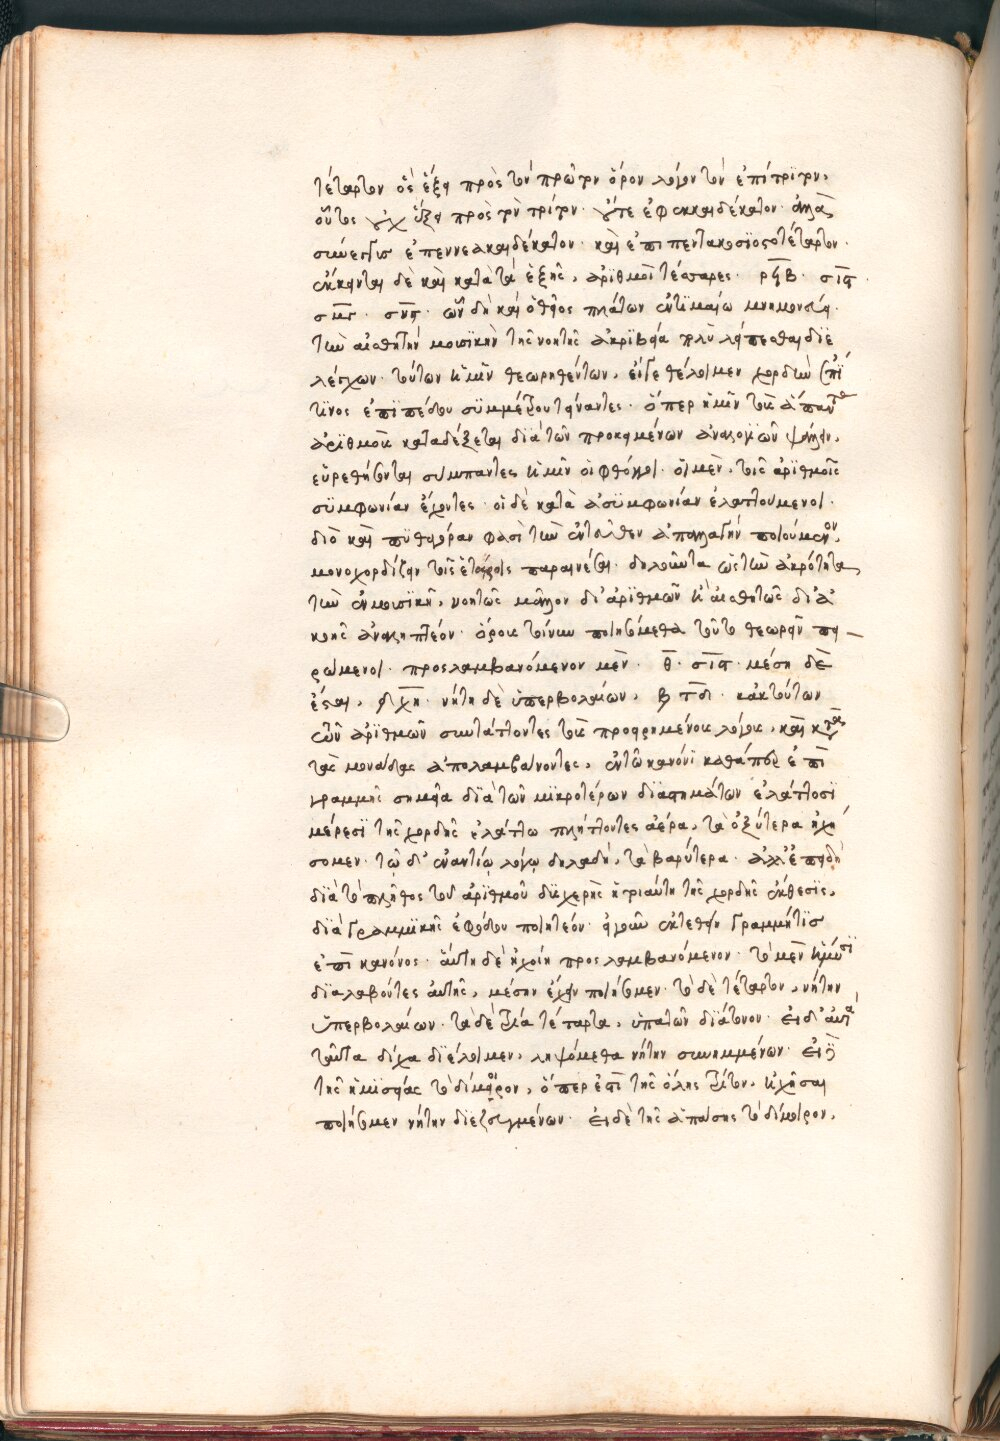 τέταρτον ὃς ἕξει πρὸς τὸν πρῶτον ὅρον λόγον τὸν ἐπίτριτον.
οὗτος οὐχ ἕξει πρὸς τὸν τρίτον οὔτε ἐφεκκαιδέκατον ἀλλὰ
σύνεγγυς ἐπεννεακαιδέκατον καὶ ἐπιπεντακοσϊοστοτέταρτον.
ἔκκεινται δὲ καὶ κατὰ τὰ ἑξῆς, ἀρϊθμοὶ τέσσαρες ρϟβ. σις
σμγ. σνς. ὧν δὴ καὶ ὁ θεῖος πλάτων ἐν τϊμαίω μνημονεύει.
τὴν αἰσθητὴν μουσϊκὴν τῆς νοητῆς ἀκρϊβεία πολὺ λείπεσθαι διε
λέγχων. τούτων ἡμῖν θεωρηθέντων, εἴγε θέλοιμεν χορδὴν ἐπί
τϊνος ἐπϊπέδου σϋμμέτρου τείναντες. ὅπερ ἡμῖν τοῖς ἅπαντα
ἀρϊθμοῖς καταδέξεται διὰ τῶν προκειμένων ἀναλογϊῶν ψήλειν,
εὑρεθήσονται σύμπαντες ἡμῖν οἱ φθόγγοι. οἱ μὲν, τοῖς ἀρϊθμοῖς
σϋμφωνίαν ἔχοντες. οἱ δὲ κατὰ ἀσϋμφωνίαν ἐλαττουμενοι.
διὸ καὶ πϋθαγόραν φασὶ τὴν ἐντεῦθεν ἀπαλλαγὴν ποιούμενον,
μονοχορδίζειν τοῖς ἑταίροις παραινέσαι. δηλοῦντα ὡς τὴν ἀκρότητα
τὴν ἐν μουσϊκῇ, νοητῶς μᾶλλον δι' ἀρϊθμῶν ἢ αἰσθητῶς δι' ἀ
κοῆς ἀναληπτέον. ὅροις τοίνυν ποιησόμεθα τοῦτο θεωρεῖν πει
ρώμενοι. προσλαμβανόμενον μὲν. θ. σις. μέση δὲ
ἔσται, δ χη. νήτη δὲ ὑπερβολαίων, β τδ. κἀκ τούτων
τῶν ἀρϊθμῶν συντάττοντες τοῖς προειρημένοις λόγοις, καὶ κατὰ
τὰς μονάδας ἀπολαμβάνοντες, ἐν τῶ κανόνϊ καθάπερ ἐπὶ
γραμμῆς σημεῖα διὰ τῶν μϊκροτέρων δϊαστημάτων ἐλάττοσϊ
μέρεσϊ τῆς χορδῆς ἐλάττω πλήττοντες ἀέρα, τὰ ὀξύτερα ἠχή
σομεν. τῷ δ' ἐναντίῳ λόγῳ δηλαδὴ, τὰ βαρύτερα. ἀλλ' ἐπειδὴ
διὰ τὸ πλῆθος τοῦ ἀρϊθμοῦ δϋσχερὴς ἡ τοιαύτη τῆς χορδῆς ἔκθεσϊς,
διὰ γραμμϊκῆς ἐφόδου ποιητέον. ἤγουν ἐκτεθείη γραμμήτϊς
ἐπὶ κανόνος. αὕτη δὲ ἠχοίη προσλαμβανόμενον. τὸ μὲν ἥμυσϊ
διαλαβόντες αὐτῆς, μέσην ἔχειν ποιήσομεν. τὸ δὲ τέταρτον, νήτην
ὑπερβολαίων. τὰ δὲ τρία τέταρτα, ὑπατῶν διάτονον. εἰ δ' αὐτὰ
ταῦτα δίχα διέλοιμεν, ληψόμεθα νήτην συνημμένων. εἰ δὲ
τῆς ἡμϊσείας τὸ δίμοιρον, ὅπερ ἐστὶ τῆς ὅλης τρίτον, ἠχῆσαι
ποιήσομεν νήτην διεζευγμένων. εἰ δὲ τῆς ἁπάσης τὸ δίμοιρον,